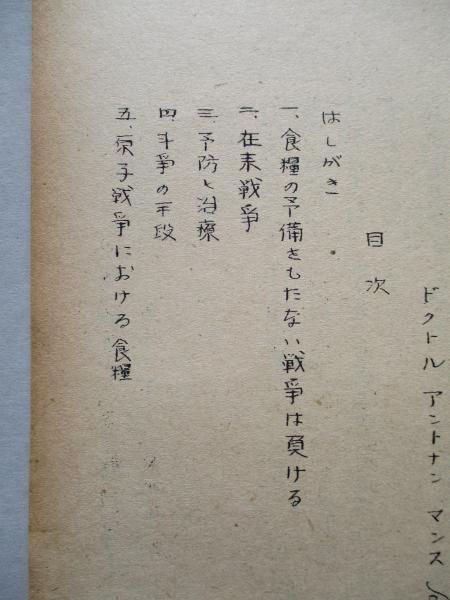 ドクトル アントナン マンス
目次
はしがき
一、食糧の予備をもたない戦争は負ける
二、在来戦争
三、予防と治療
四、斗争の手段
五、原子戦争における食糧